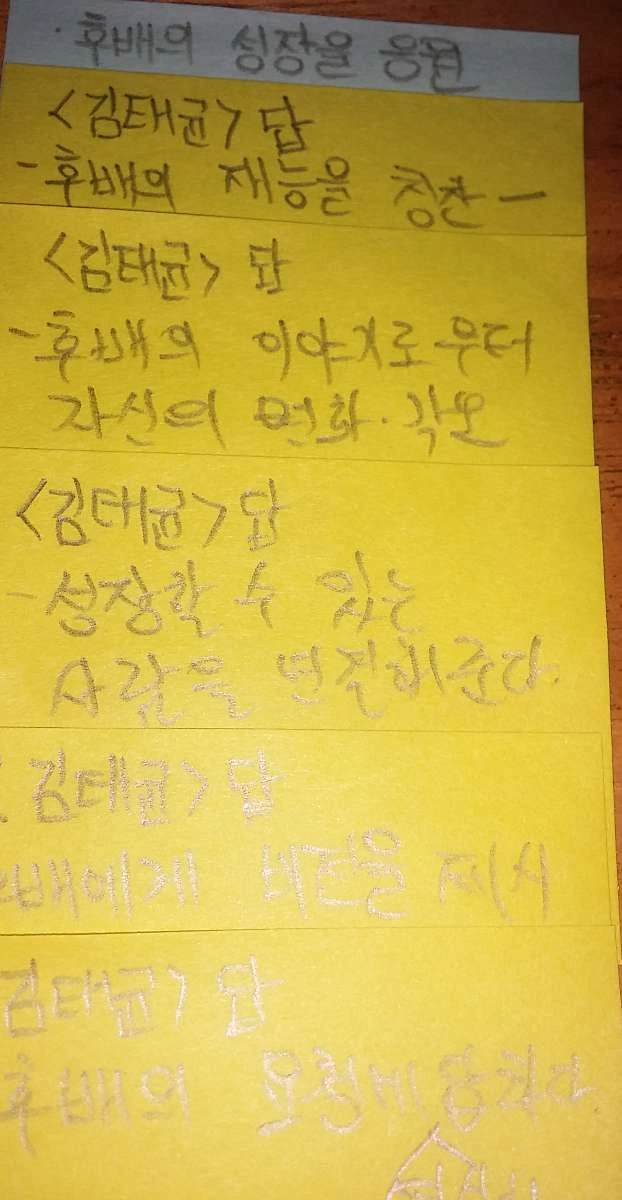 · 후배의 성장을 응원
<김태균> 답
- 후배의 재능을 칭찬 -
<김태균> 답
- 후배의 이야기로부터
자신의 변화·각오
<김태균> 답
- 성장할 수 있는
사람을 연결해준다.
김태균> 답
배에게 비전을 제시
김태균> 답
후배의 요청에